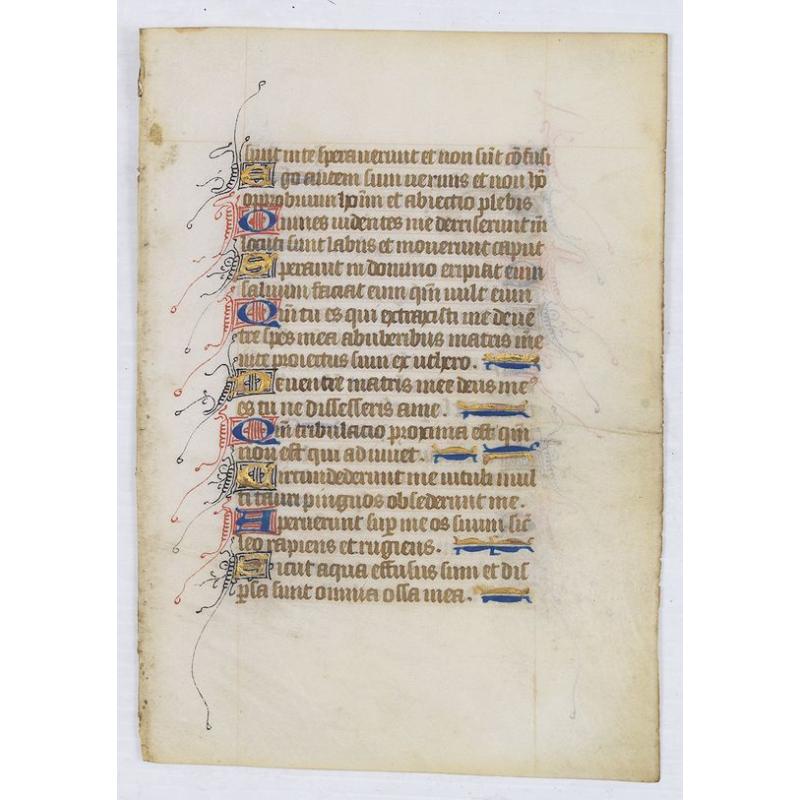 sunt in te speraverunt et non sūt cōfusi
Ego autem sum vermis et non hō
opprobrium hoīm et abiectio plebis
Omnes videntes me deriserunt m̄
locuti sunt labiis et moverunt caput
Speravit in domino eripiat eum
salvum faciat eum qm̄ vult eum
Qm̄ tu es qui extraxisti me de vē
tre spes mea ab uberibus matris mee
in te proiectus sum ex uthero.
De ventre matris mee deus me9
es tu ne discesseris a me.
Qm̄ tribulacio proxima est qm̄
non est qui adiuvet.
Circundederunt me vituli mul
ti tauri pinguos obsederunt me.
Aperuerunt sup̄ me os suum sic̄
leo rapiens et rugiens.
Sicut aqua effusus sum et dis
p̄sa sunt omnia ossa mea.